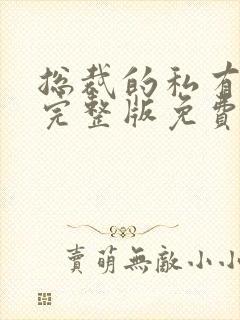 总裁的私有
完整版免费
賣萌無敵小小